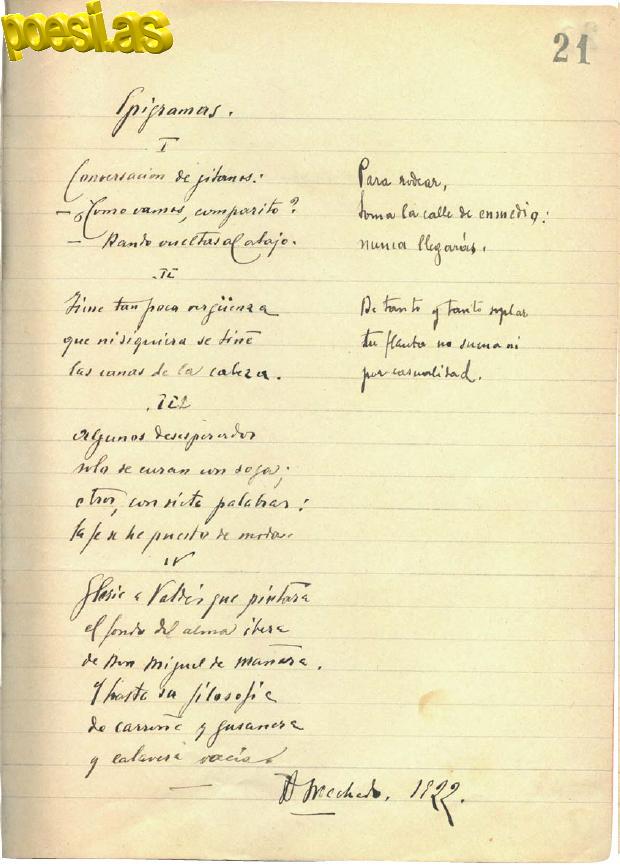 poesi.as
21
Epigramas.
I
Conversación de jitanos:
— ¿Como vamos, comparito?
— Dando vueltas al atajo.
II
Tiene tan poca vergüenza
que ni siquiera se tiñe
las canas de la cabeza.
III
Algunos desesperados
solo se curan con soga;
otros, con siete palabras:
la fe se ha puesto de moda.
IV
a Valdés que pintara
el fondo del alma ibera
de Don Miguel de Mañara.
Y hasta su filosofía
de carroña y gusanera
y calavera vacía.
Para rodear,
toma la calle de enmedio:
nunca llegarás.
De tanto y tanto soplar
tu flauta no suena ni
por casualidad.
A Machado. 1922.